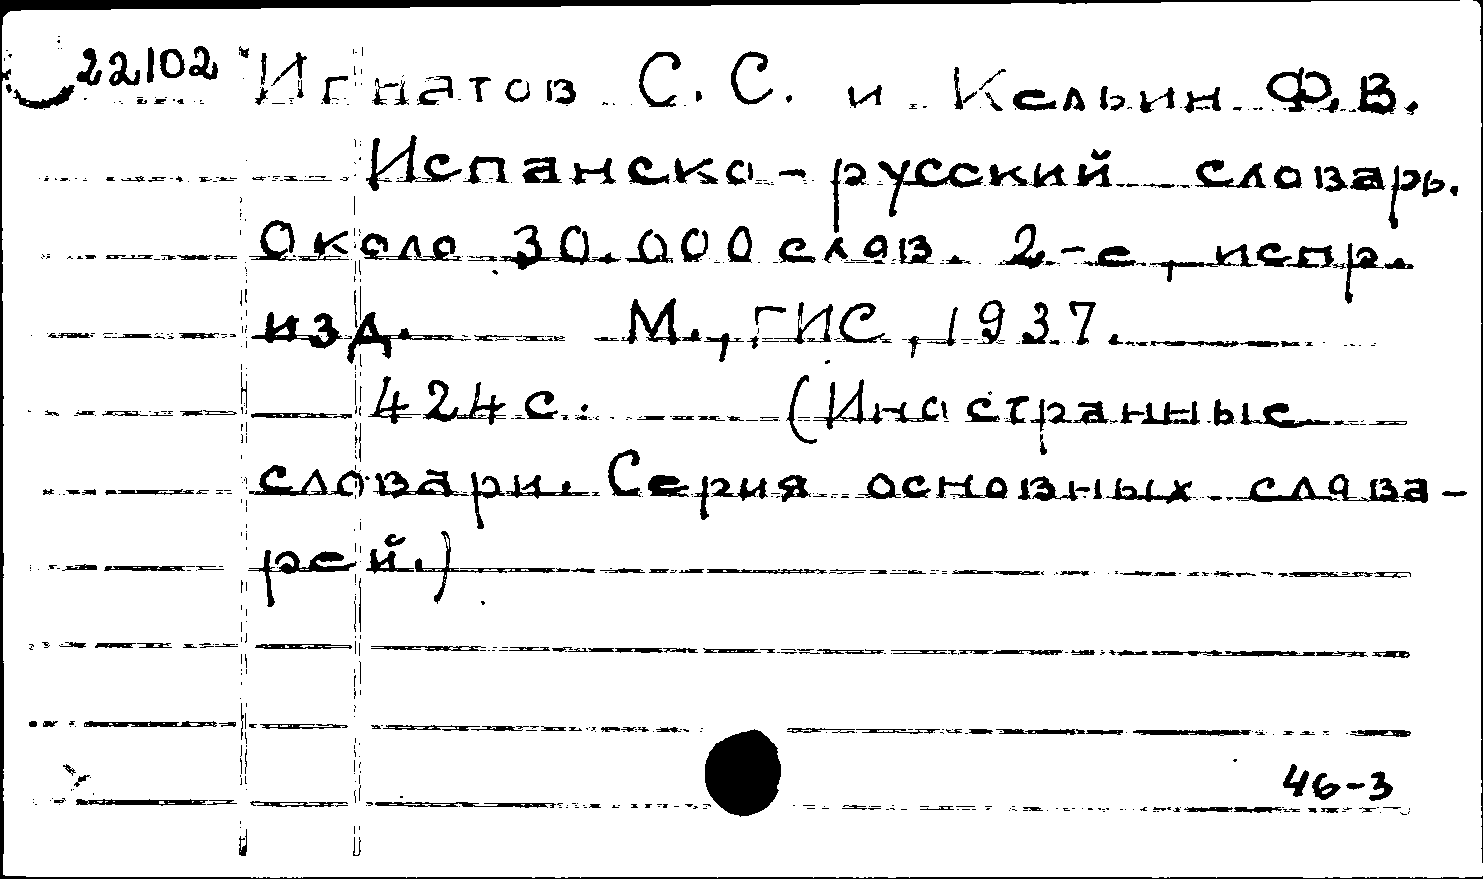 22102 Игнатов С.С. и Кельин Ф.В.
Испанско-русский словарь.
Около 30.000 слов. 2-е, испр.
изд. М., ГИС, 1937.
424 с. (Иностранные
словари. Серия основных слова-
рей.)
46-3